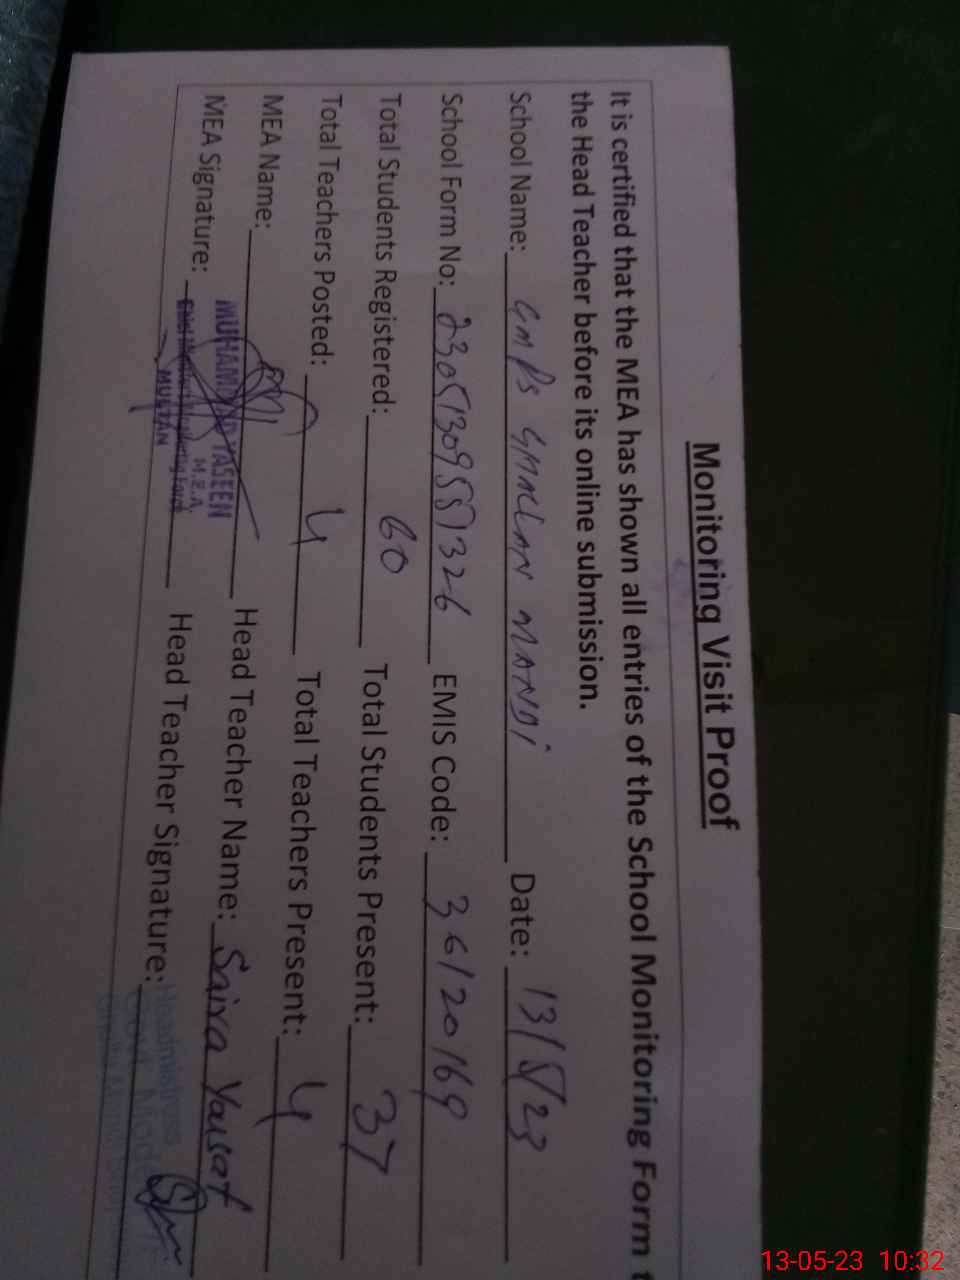 Monitoring Visit Proof
It is certified that the MEA has shown all entries of the School Monitoring Form t
the Head Teacher before its online submission.
School Name: GMPS GHALLAH MANDi Date: 13/5/23
School Form No: EMIS Code: 36120169
Total Students Registered: 60 Total Students Present: 37
Total Teachers Posted: 4 Total Teachers Present: 4
MEA Name: Head Teacher Name: Saira Yousaf
MUHAMMAD YASEEN
M.E.A.
MEA Signature: Head Teacher Signature:
MULTAN
Headmistress
13-05-23 10:32